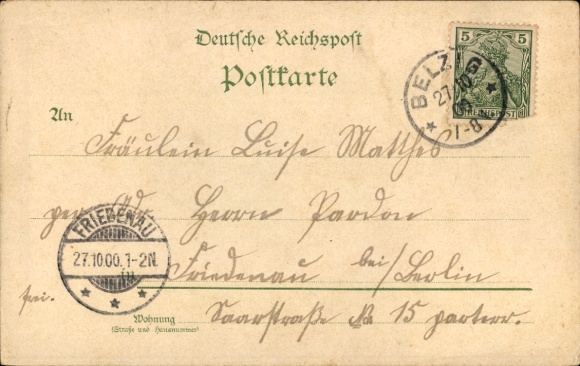 Deutsche Reichspost
Postkarte
5 5
REICHSPOST
BELZIG
27.10.00
7-8
An
Fräulein Luise Matthes
per Adr. Herrn Pardon
FRIEDENAU
27.10.00.1-2N.
in Friedenau bei/Berlin
frei.
Saarstraße № 15 parterr.
Wohnung
(Straße und Hausnummer)